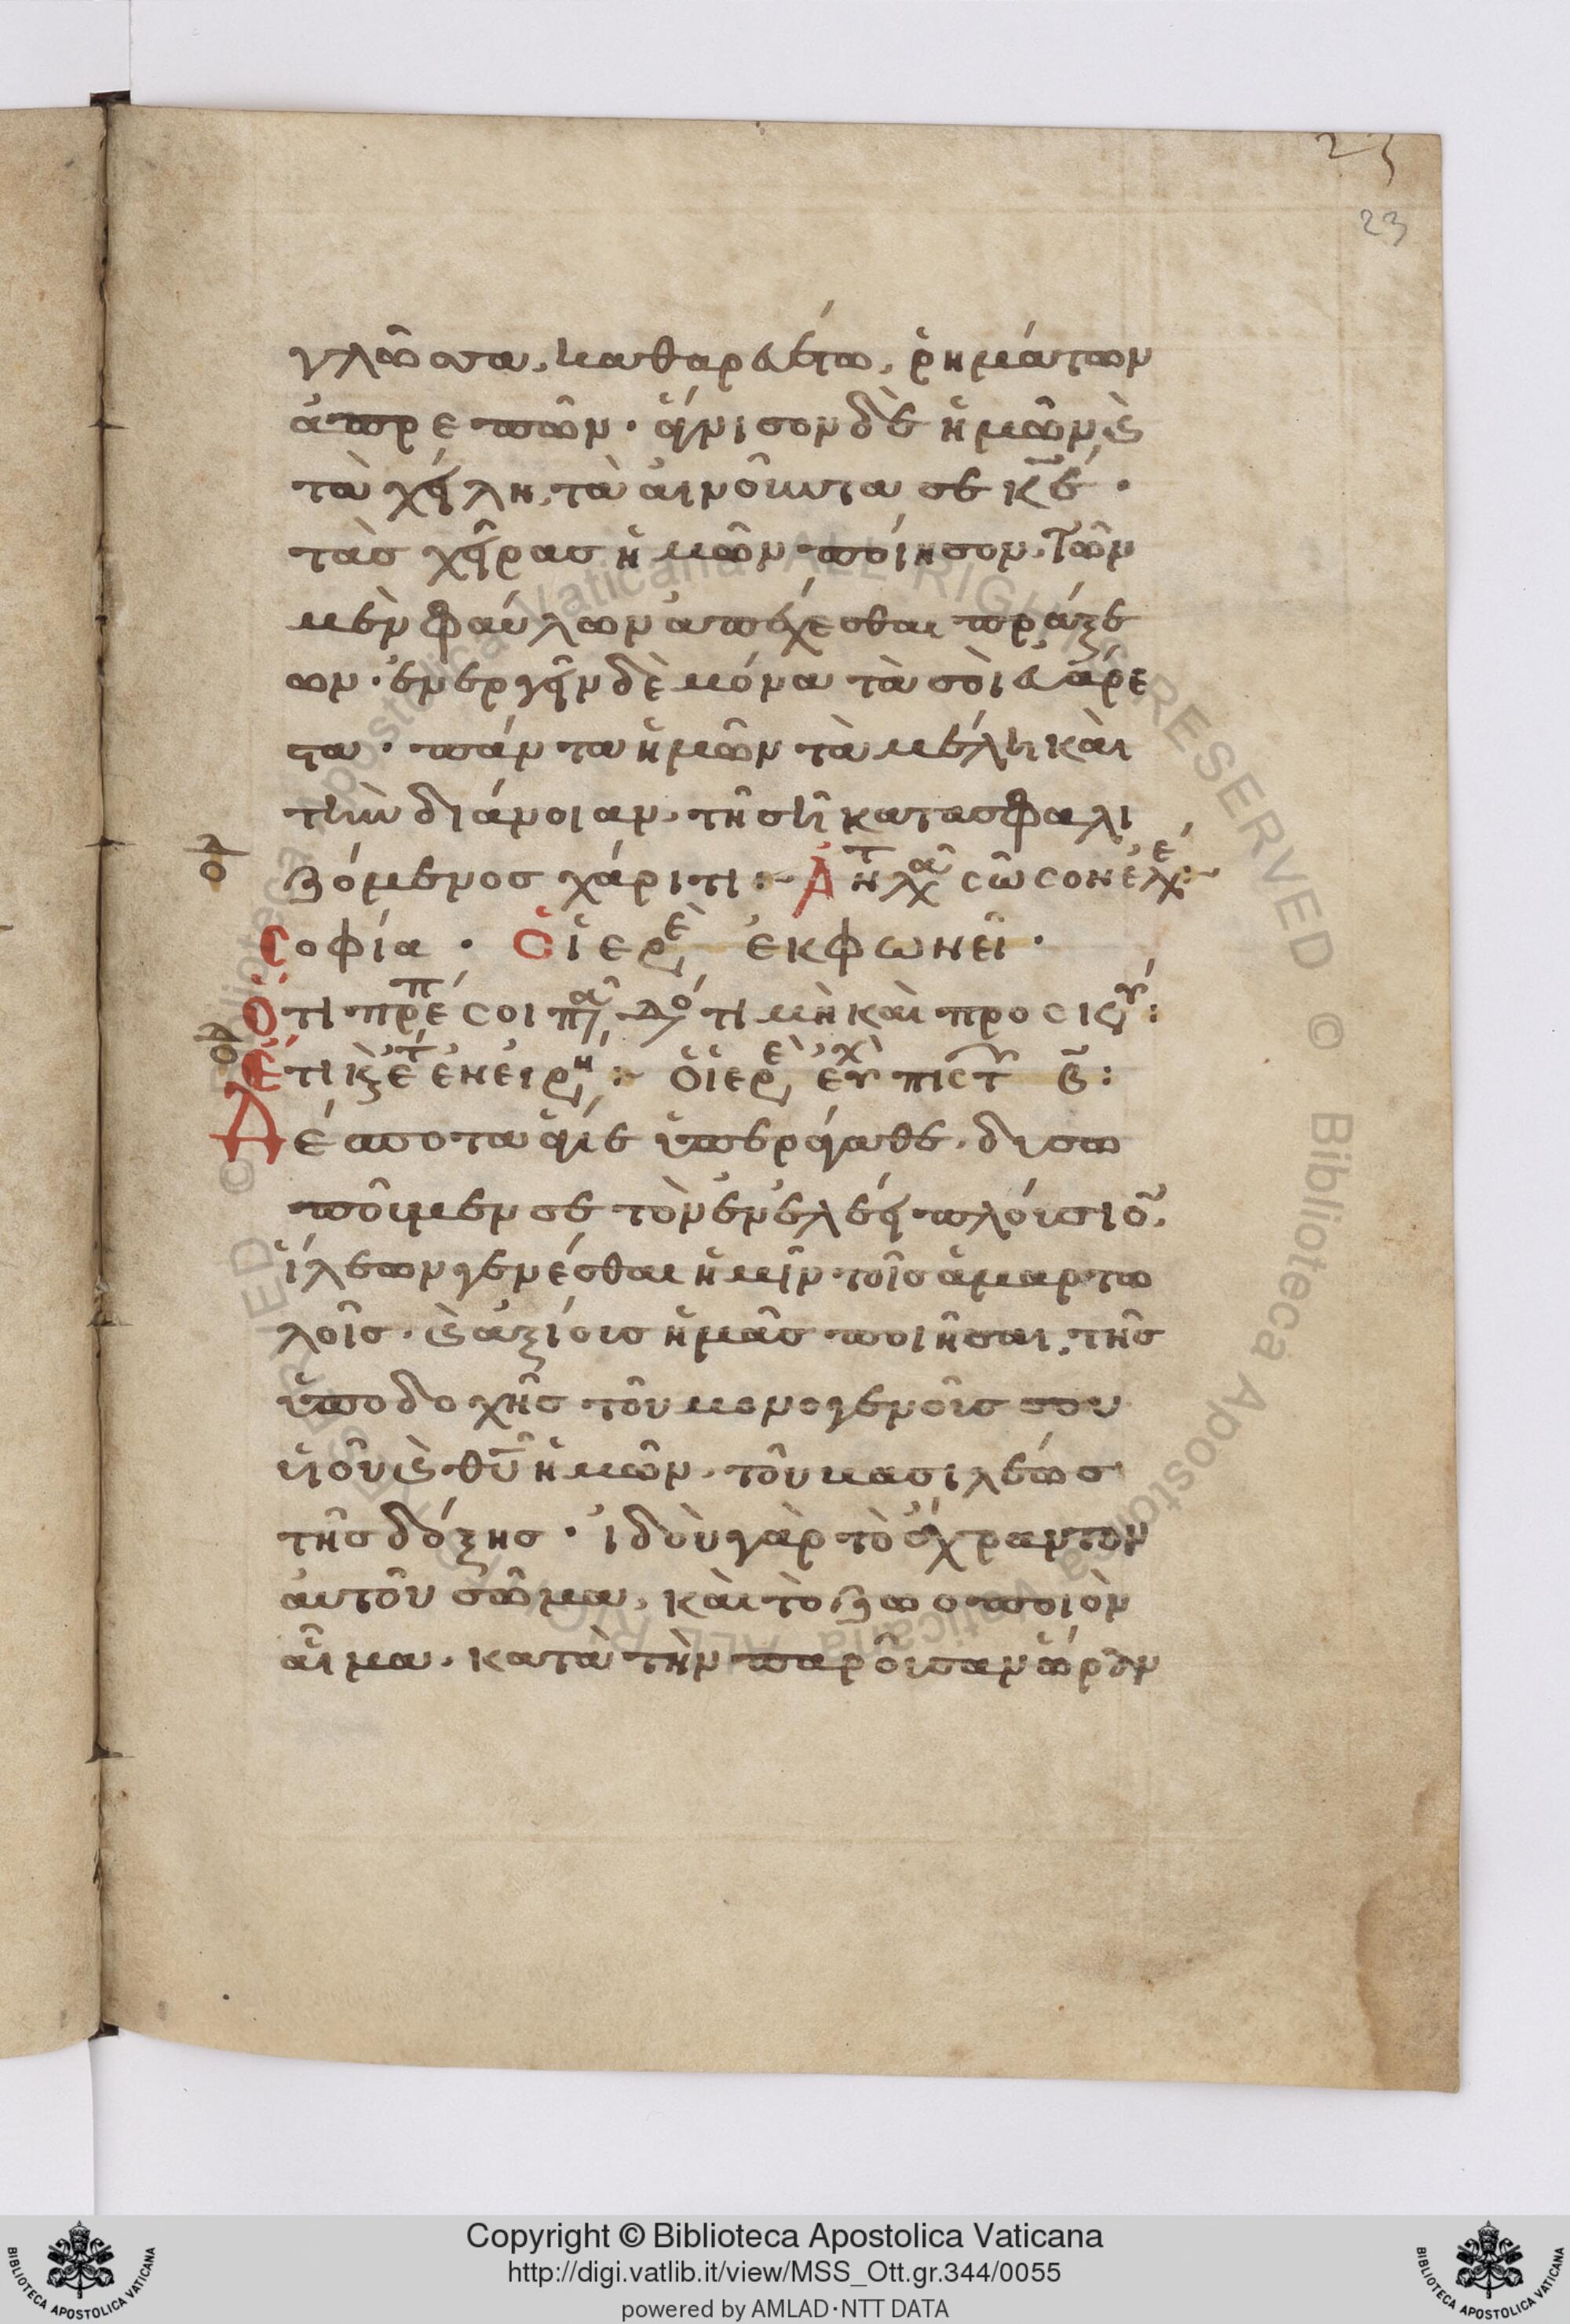 23
23
γλῶσσα, καθαρεύτω, ῥημάτων
ἀπρεπῶν· ἅγνισον δὲ ἡμῶν ϗ
τὰ χείλη, τὰ αἰνοῦντα σὲ κ̅ε̅·
τὰς χεῖρας ἡμῶν ποίησον, τῶν
μὲν φαύλων ἀπέχεσθαι πράξε
ων· ἐνεργεῖν δὲ μόνα τὰ σοὶ εὐάρε
στα· πάντα ἡμῶν τὰ μέλη καὶ
τὴν διάνοιαν, τῆ σῆ κατασφαλι
ζόμενος χάριτι:~ Ἀντ λα σῶσον ἐλε:~
Σοφία· Ὁ ἱερε ἐκφωνεῖ·
Ὅτι πρέπ σοι πα δο τιμὴ καὶ προσκυ:
Ἔτι κ ἔτ ἐν εἰρη:~ Ὁ ἱερε εὐχ πιστ β̅:
Δέσποτα ἅγιε ὑπεράγαθε, δυσω
ποῦμεν σε τὸν ἐν ἐλέει πλούσιον,
ἵλεων γενέσθαι ἡμῖν τοῖς ἁμαρτω
λοῖς· ϗ ἀξίους ἡμᾶς ποιῆσαι, τῆς
ὑποδοχῆς τοῦ μονογενοῦς σου
υἱοῦ ϗ θ̅υ̅ ἡμῶν, τοῦ βασιλέως
τῆς δόξης· ἰδοὺ γὰρ τὸ ἄχραντον
αὐτοῦ σῶμα, καὶ τὸ ζωοποιὸν
αἷμα, κατὰ τὴν παροῦσαν ὥραν
Copyright © Biblioteca Apostolica Vaticana
http://digi.vatlib.it/view/MSS_Ott.gr.344/0055
powered by AMLAD·NTT DATA
BIBLIOTECA APOSTOLICA VATICANA
BIBLIOTECA APOSTOLICA VATICANA